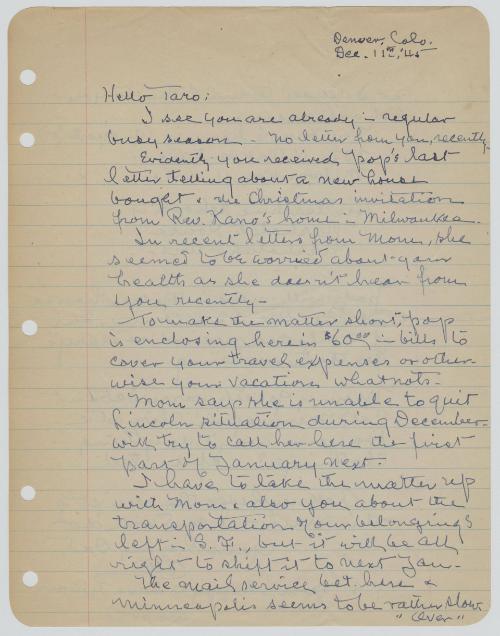 Denver, Colo.
Dec. 11th, '45
Hello Taro;
I see you are already in regular
busy season - no letter from you, recently.
Evidently you received pop's last
letter telling about a new house
bought & the Christmas invitation
from Rev. Kano's home in Milwaukea.
In recent letters from Mom, she
seemed to be worried about your
health as she doesn't hear from
you recently -
To make the matter short, pop
is enclosing herein $60.00 in bills to
cover your travel expenses or other-
wise your vacation whatnots.
Mom says she is unable to quit
Lincoln situation during December.
will try to call her here the first
part of January next.
I have to take the matter up
with Mom & also you about the
transportation of our belongings
left in S. F., but it will be all
right to shift it to next Jan.
The mail service bet. here &
Minneapolis seems to be rather slow.
"Over"